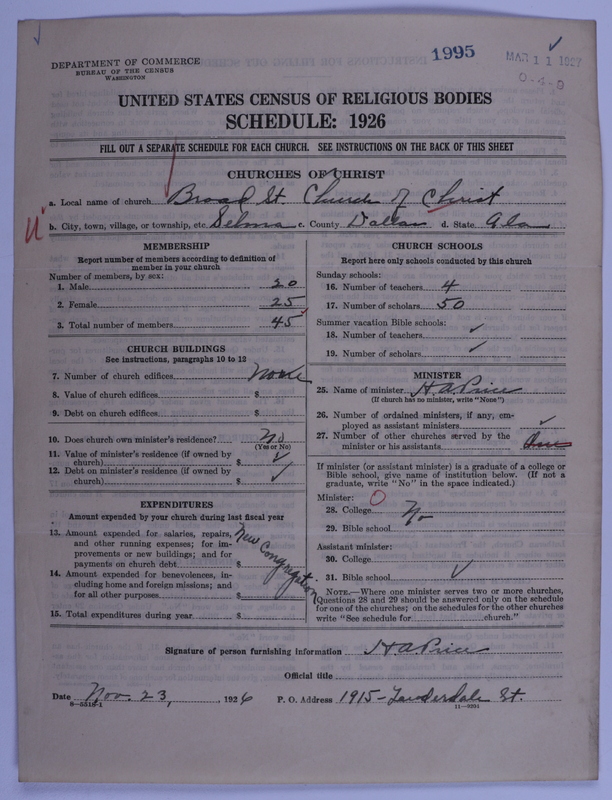 DEPARTMENT OF COMMERCE
BUREAU OF THE CENSUS
WASHINGTON
1995
MAR 11 1927
0-4-0
UNITED STATES CENSUS OF RELIGIOUS BODIES
SCHEDULE: 1926
FILL OUT A SEPARATE SCHEDULE FOR EACH CHURCH. SEE INSTRUCTIONS ON THE BACK OF THIS SHEET
CHURCHES OF CHRIST
a. Local name of church Broad St. Church of Christ
b. City, town, village, or township, etc. Selma c. County Dallas d. State Ala
MEMBERSHIP
Report number of members according to definition of
member in your church
Number of members, by sex:
1. Male 20
2. Female 25
3. Total number of members 45
CHURCH BUILDINGS
See instructions, paragraphs 10 to 12
7. Number of church edifices None
8. Value of church edifices $
9. Debt on church edifices $
10. Does church own minister's residence? No
(Yes or No)
11. Value of minister's residence (if owned by
church) $ ✓
12. Debt on minister's residence (if owned by
church) $ ✓
EXPENDITURES
Amount expended by your church during last fiscal year
13. Amount expended for salaries, repairs,
and other running expenses; for im-
provements or new buildings; and for
payments on church debt $
New Congregation
14. Amount expended for benevolences, in-
cluding home and foreign missions; and
for all other purposes $
15. Total expenditures during year $
CHURCH SCHOOLS
Report here only schools conducted by this church
Sunday schools:
16. Number of teachers 4
17. Number of scholars 50
Summer vacation Bible schools:
18. Number of teachers ✓
19. Number of scholars ✓
MINISTER
25. Name of minister H A Price
(If church has no minister, write "None")
26. Number of ordained ministers, if any, em-
ployed as assistant ministers ✓
27. Number of other churches served by the
minister or his assistants
If minister (or assistant minister) is a graduate of a college or
Bible school, give name of institution below. (If not a
graduate, write "No" in the space indicated.)
Minister: O
28. College No
29. Bible school
Assistant minister:
30. College
31. Bible school ✓
NOTE.—Where one minister serves two or more churches,
Questions 28 and 29 should be answered only on the schedule
for one of the churches; on the schedules for the other churches
write "See schedule for church."
Signature of person furnishing information H A Price
Official title
Date Nov. 23, 1926 P. O. Address 1915 - Lauderdale St.
8-5518-1 11-9231